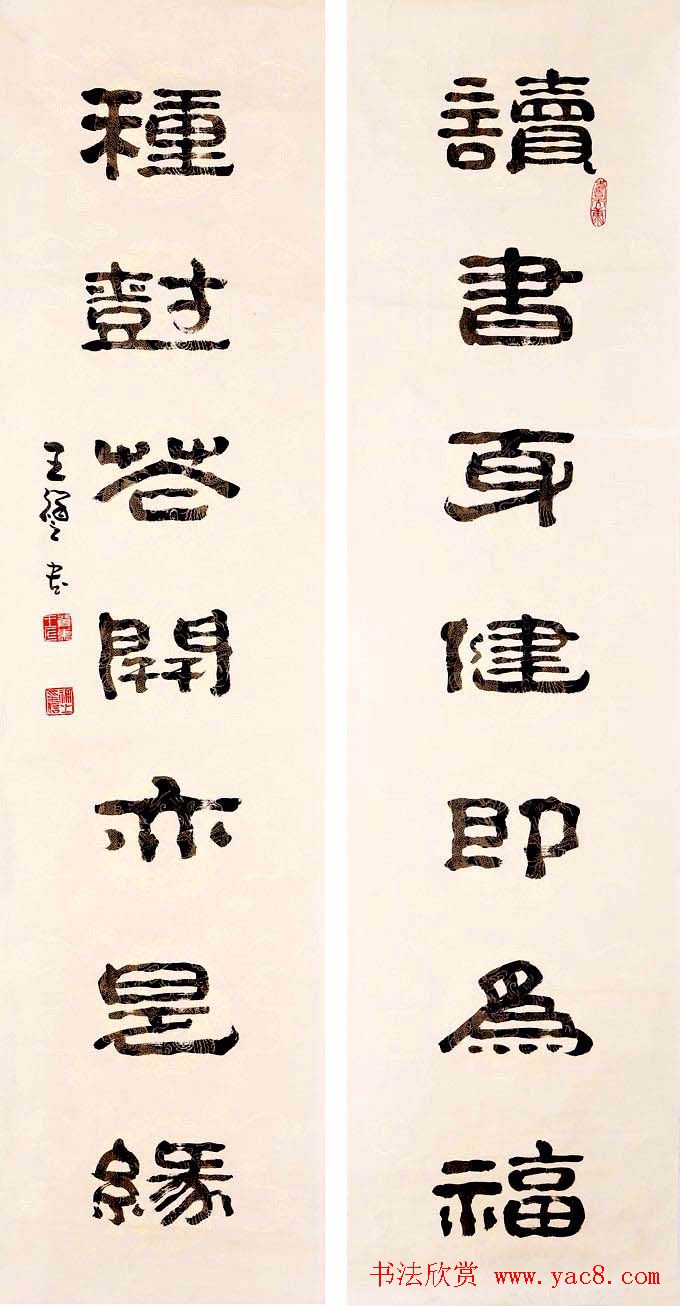 讀書身健即爲福
種尌花開亦是緣
王 書
书法欣赏 www.yac8.com